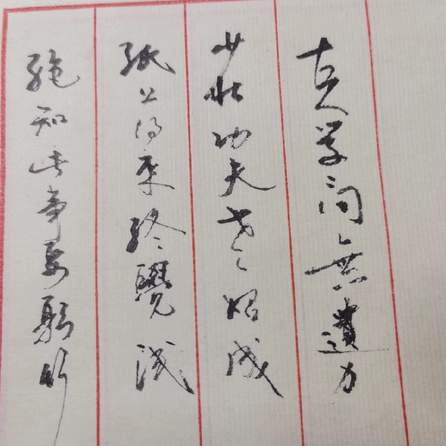 古人学问无遗力
少壮功夫老始成
纸上得来终觉浅
绝知此事要躬行